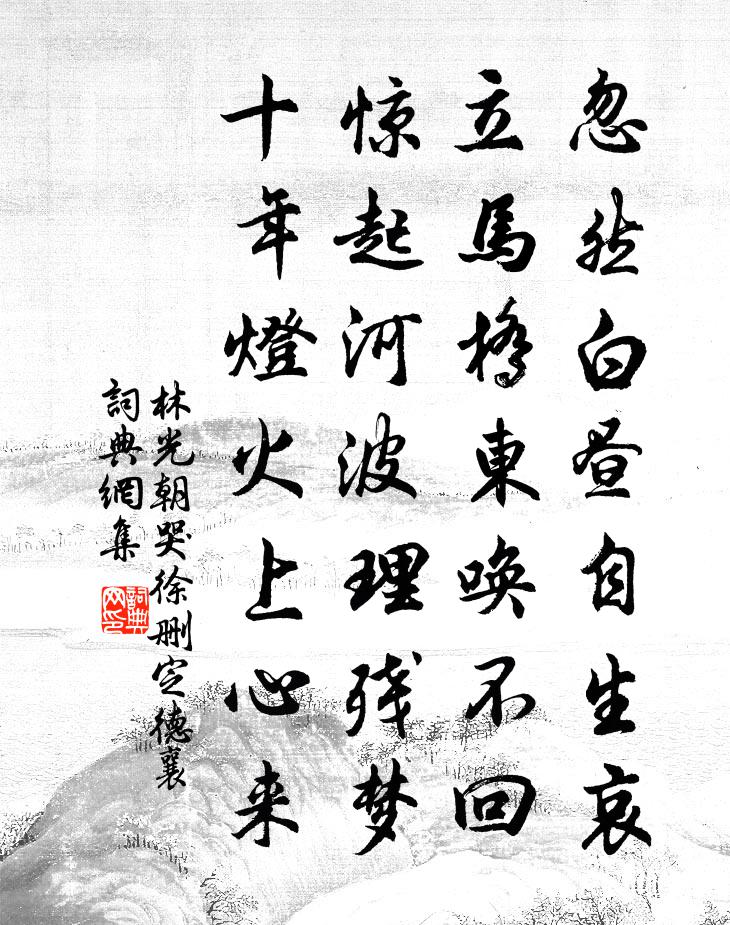 忽然白昼自生哀
立馬橋東唤不回
惊起河波理残梦
十年燈火上心来
林光朝哭徐删定德襄
詞典網集
詞典网印